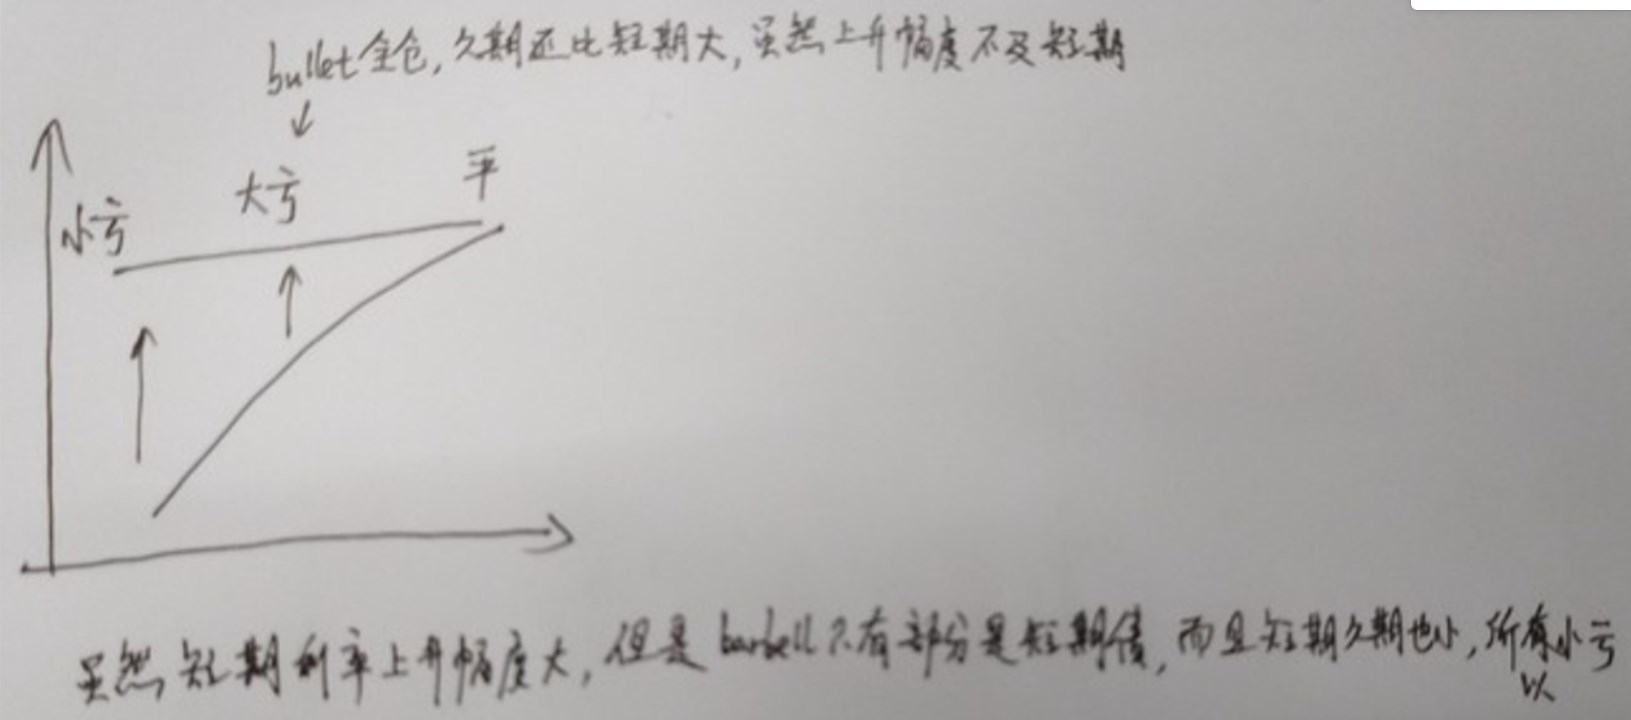 bullet全仓,久期还比短期大,虽然上升幅度不及短期
小亏
大亏
平
虽然短期利率上升幅度大,但是barbell只有部分是短期债,而且短期久期也小,所有小亏
以